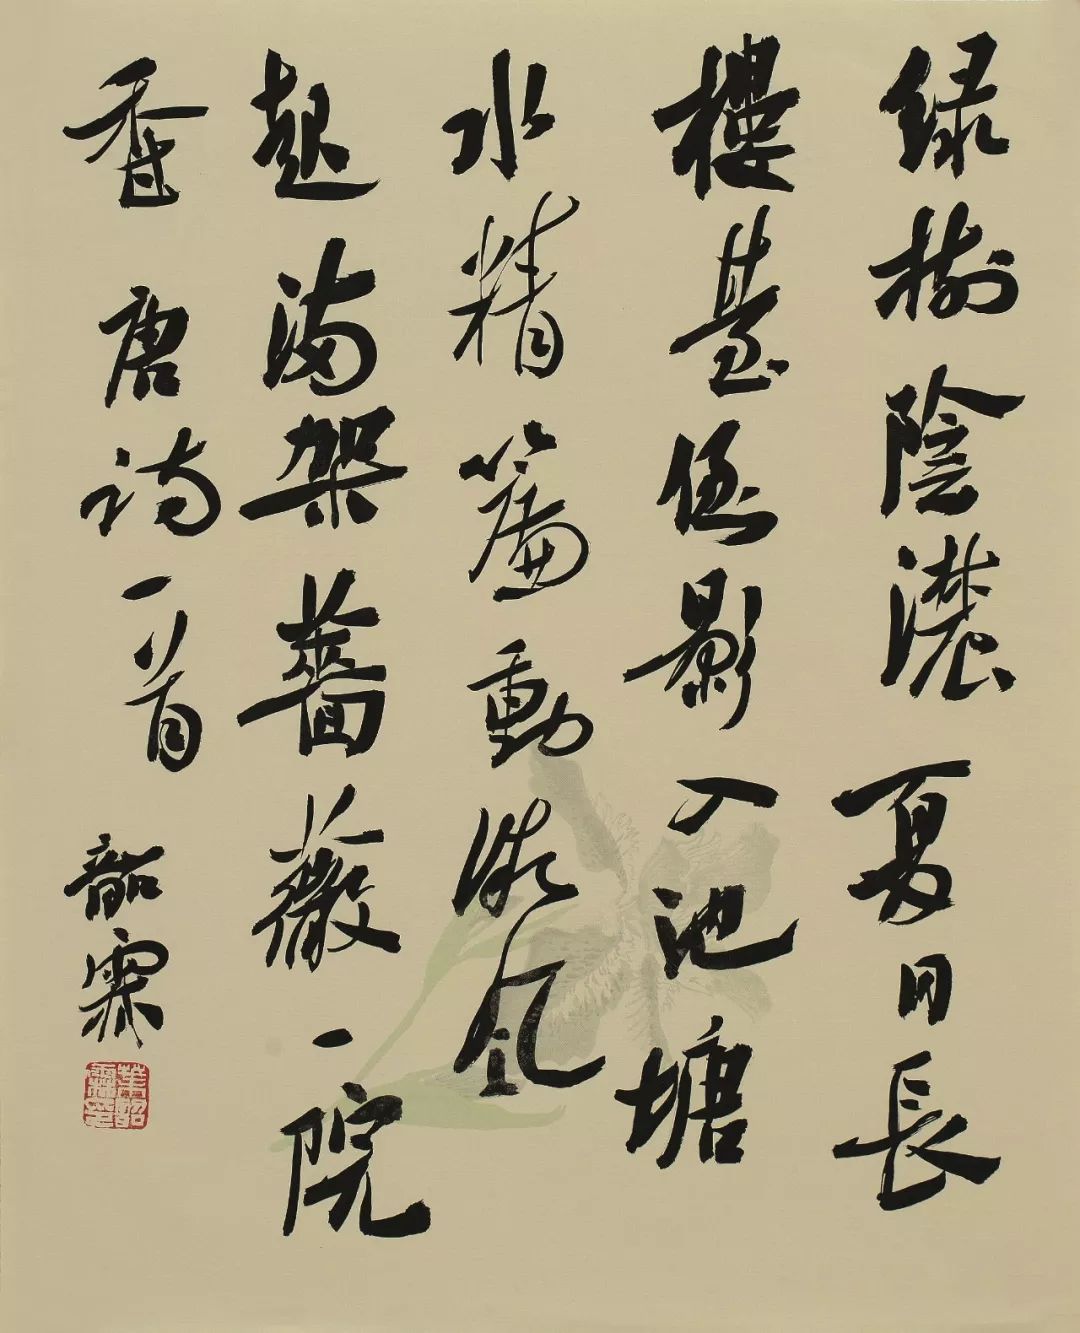 绿樹陰濃夏日長
樓臺倒影入池塘
水精簾動微風
起滿架薔薇一院
香 唐詩一首 韶霖